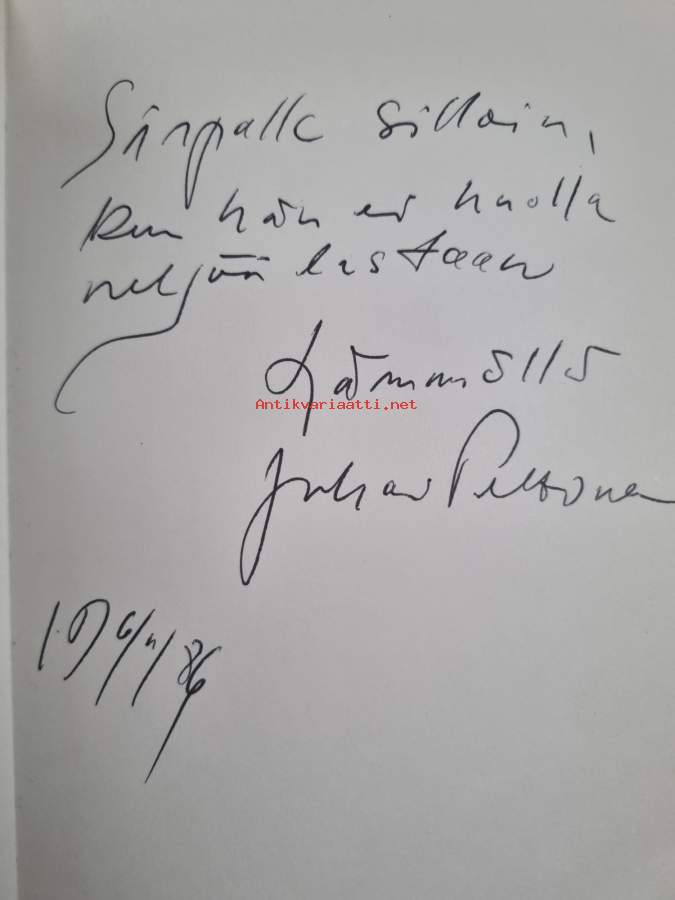 Sirpalle silloin,
kun hän ei huolla
neljää lastaan
Lämmöllä
Antikvariaatti.net
Juhani Peltonen
6/11/86